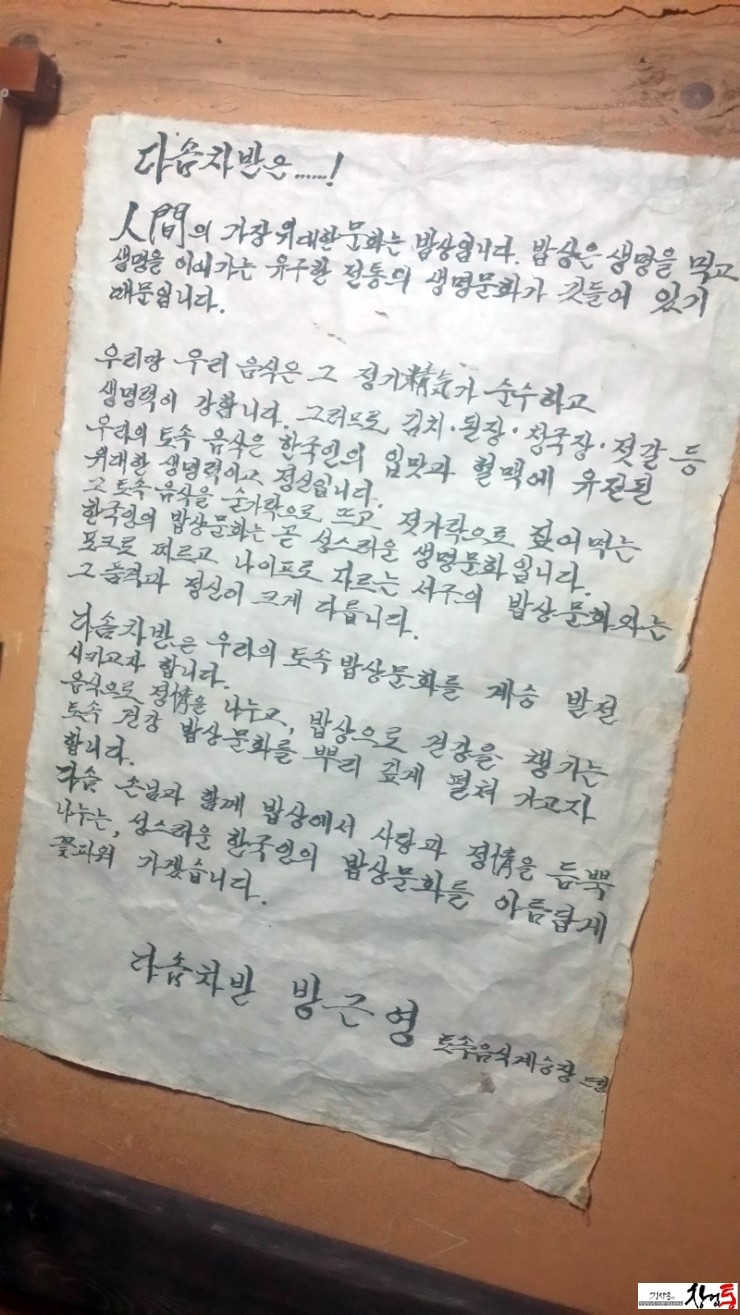 다솜차반은......!
人間의 가장 위대한 문화는 밥상입니다. 밥상은 생명을 먹고
생명을 이어가는 유구한 전통의 생명문화가 깃들어 있기
때문입니다.
우리땅 우리 음식은 그 정기精気가 순수하고
생명력이 강합니다. 그러므로 김치·된장·청국장·젓갈 등
우리의 토속 음식은 한국인의 입맛과 혈맥에 유전된
위대한 생명력이고 정신입니다.
그 토속 음식을 숟가락으로 뜨고 젓가락으로 집어 먹는
한국인의 밥상문화는 곧 성스러운 생명문화입니다.
포크로 찌르고 나이프로 자르는 서구의 밥상문화와는
그 품격과 정신이 크게 다릅니다.
다솜차반은 우리의 토속 밥상문화를 계승 발전
시키고자 합니다.
음식으로 정情을 나누고, 밥상으로 건강을 챙기는
토속 건강 밥상문화를 뿌리 깊게 펼쳐 가고자
합니다.
다솜 손님과 함께 밥상에서 사랑과 정情을 듬뿍
나누는, 성스러운 한국인의 밥상문화를 아름답게
꽃피워 가겠습니다.
다솜차반 방근영 토속음식계승장 드림